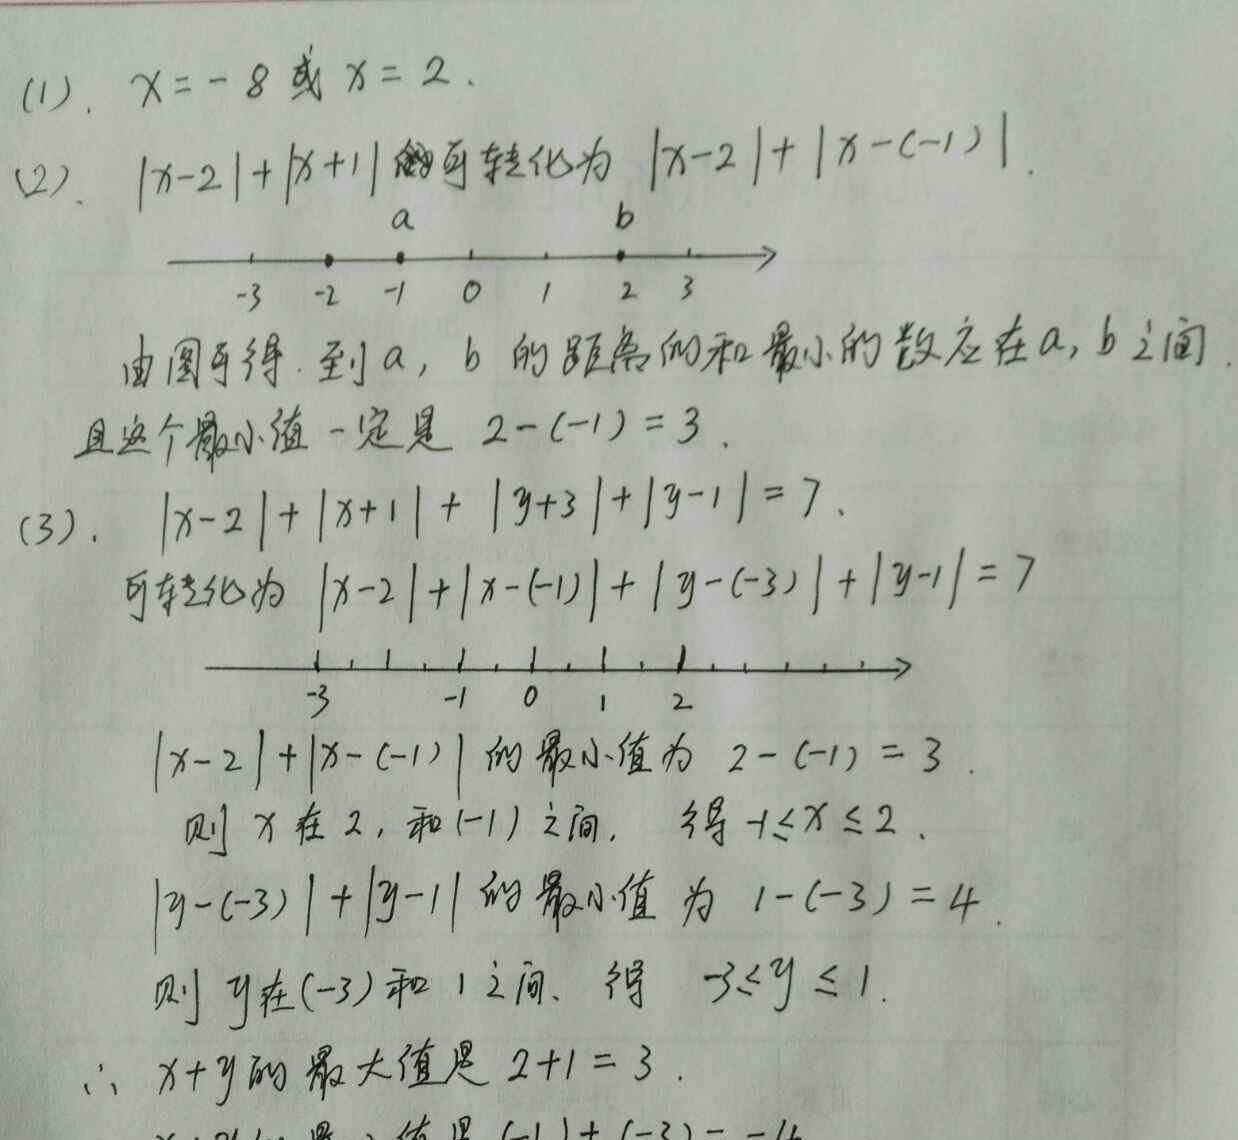 (1). x=-8或x=2.
(2). |x-2|+|x+1|可转化为|x-2|+|x-(-1)|.
a b
-3 -2 -1 0 1 2 3
由图可得.到a,b的距离的和最小的数应在a,b之间.
且这个最小值一定是2-(-1)=3.
(3). |x-2|+|x+1|+|y+3|+|y-1|=7.
可转化为|x-2|+|x-(-1)|+|y-(-3)|+|y-1|=7
-3 -1 0 1 2
|x-2|+|x-(-1)|的最小值为2-(-1)=3.
则x在2,和(-1)之间, 得-1≤x≤2.
|y-(-3)|+|y-1|的最小值为1-(-3)=4.
则y在(-3)和1之间、得 -3≤y≤1.
∴ x+y的最大值是2+1=3.
x+y的最小值是(-1)+(-3)=-4